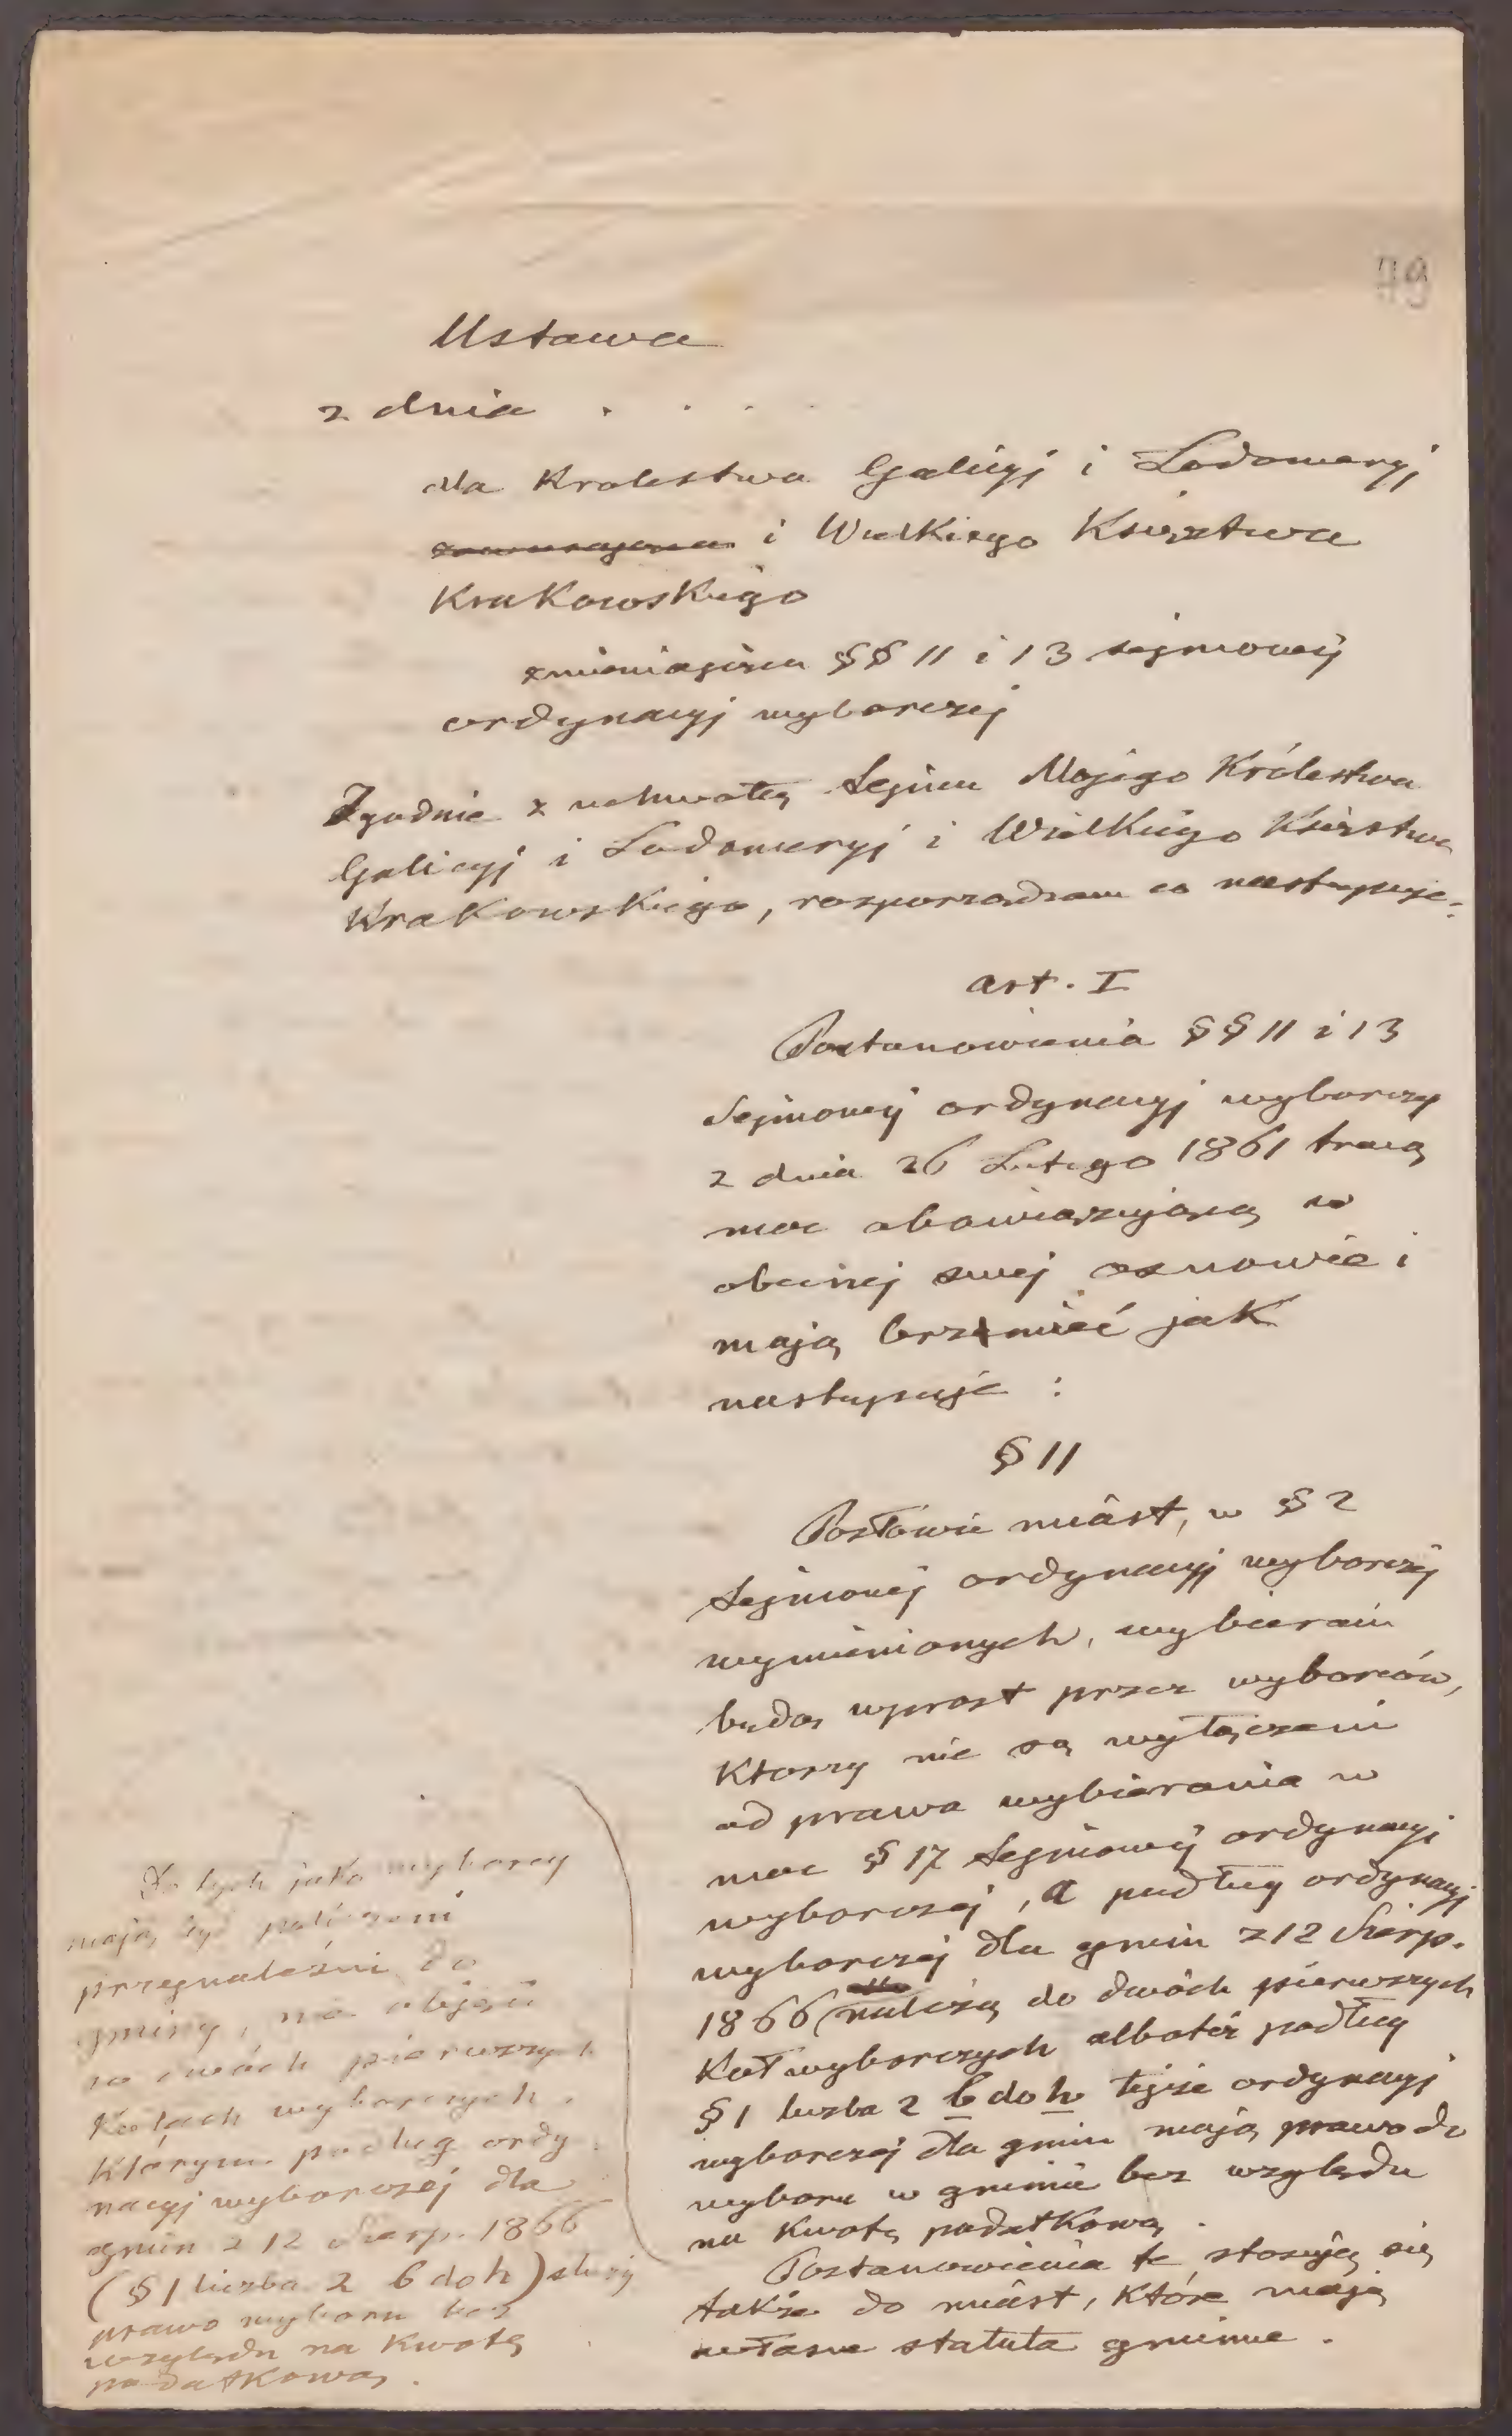 79
Ustawa
z dnia . . . .
dla Krolestwa Galicyj i Lodomeryj
i Wielkiego Księztwa
Krakowskiego
zmieniająca §§ 11 i 13 sejmowej
ordynacyj wyborczej
Zgodnie z uchwałą Sejmu Mojego Królestwa
Galicyj i Lodomeryj i Wielkiego Księstwa
Krakowskiego, rozporządzam co następuje:
art. I
Postanowienia §§ 11 i 13
Sejmowej ordynacyj wyborczej
z dnia 26 Lutego 1861 tracą
moc obowiązującą w
obecnej swej osnowie i
mają brzmieć jak
następuje :
§ 11
Posłowie miast, w § 2
Sejmowej ordynacyj wyborczej
wymienionych, wybierani
będą wprost przez wyborców,
Ktorzy nie są wyłączeni
od prawa wybierania w
moc § 17 Sejmowej ordynacyj
wyborczej, a podług ordynacyj
wyborczej dla gmin z 12 Sierp.
1866 należą do dwóch pierwszych
Kół wyborczych albotéż podług
§ 1 liczba 2 b do h tejże ordynacyj
wyborczej dla gmin mają prawo do
wyboru w gminie bez względu
na Kwotę podatkową.
Postanowienia te stosują się
także do miast, które mają
własne statuta gminne.
Do tych jako wyborcy
mają być policzeni
przynależni do
gminy, nie objęci
w dwóch pierwszych
Kołach wyborczych,
Którym podług ordy
nacyj wyborczej dla
gmin z 12 Sierp. 1866
(§ 1 liczba 2 b do h) służy
prawo wyboru bez
względu na Kwotę
podatkową.